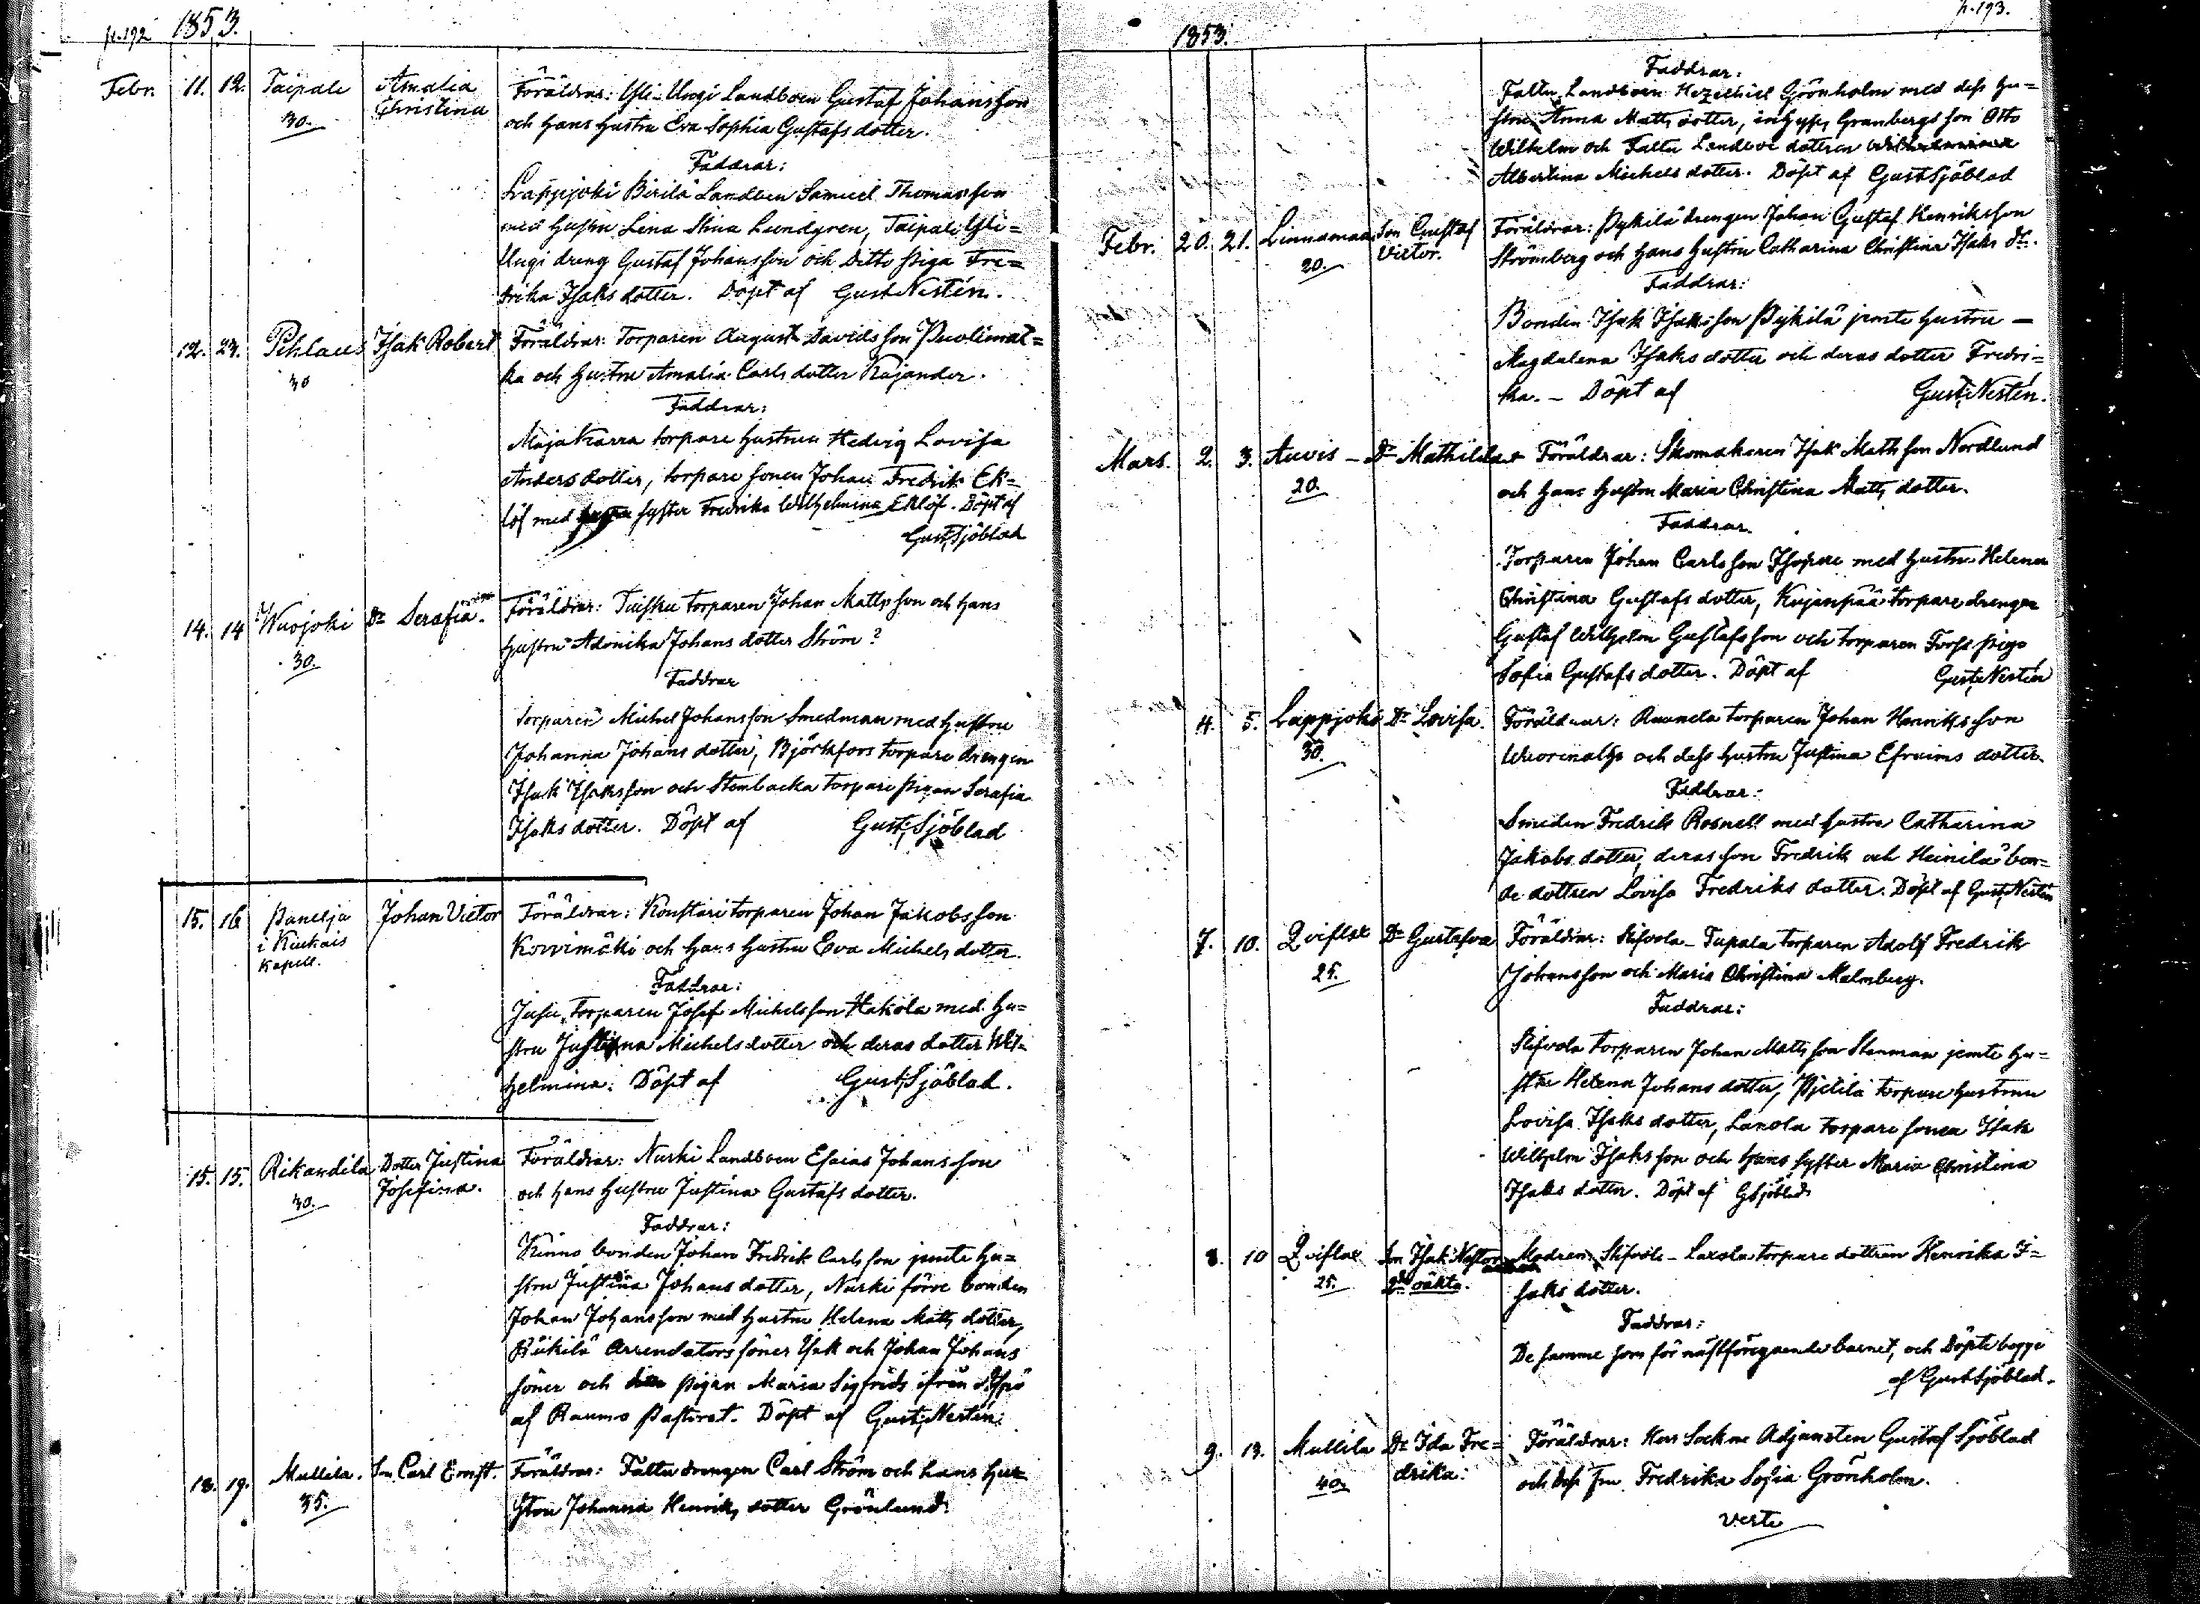 p.192 1853.
Febr. 11. 12. Taipale Amalia Föräldrar: Yli-Ungi Landboen Gustaf Johansson
30. Christina och hans hustru Eva Sophia Gustafs dotter.
Faddrar:
Lappjoki Birilä Landboen Samuel Thomasson
med hustru Lena Stina Lundgren, Taipale Yli-
Ungi dreng Gustaf Johansson och Ditto piga Fre-
drika Isaks dotter. Döpt af Gust. Nestén.
12. 24. Pihlaus Isak Robert Föräldrar: Torparen August Davidsson Puolimat-
30 ka och hustru Amalia Carls dotter Kajander.
Faddrar:
torpare hustrun Hedvig Lovisa
Anders dotter, torpare sonen Johan Fredrik Ek-
löf med syster Fredrika Wilhelmina Eklöf. Döpt af
Gust. Sjöblad
14. 14 Wuojoki Dr Serafia. Föräldrar: Tuisku torparen Johan Mattsson och hans
30. hustru Adonika Johans dotter Ström?
Faddrar
torparen Michel Johansson Smedman med hustru
Johanna Johans dotter, Björkfors torpare drengen
Isak Isaksson och Stenbacka torpare pigan Serafia
Isaks dotter. Döpt af Gust. Sjöblad
15. 16 Panelja Johan Victor Föräldrar: Konstari torparen Johan Jakobsson
i Kiukais Korvimäki och hans hustru Eva Michels dotter.
Kapell.
Faddrar:
Jusu torparen Josef Michelsson Hakola med hu-
stru Justina Michels dotter och deras dotter Wil-
helmina. Döpt af Gust. Sjöblad.
15. 15. Rikandila Dotter Justina Föräldrar: Nurki Landboen Esaias Johansson
30. Josefina. och hans hustru Justina Gustafs dotter.
Faddrar:
Kinno bonden Johan Fredrik Carlsson jemte hu-
stru Justina Johans dotter, Nurki förre bonden
Johan Johansson med hustru Helena Matts dotter,
Arrendators söner Isak och Johan Johans
söner och pigan Maria Sigfrids ifrån
af Raumo Pastorat. Döpt af Gust. Nestén.
18. 19. Mullila. Son Carl Ernst. Föräldrar: Fattu drengen Carl Ström och hans hu-
35. stru Johanna Henriks dotter Grönlund.
p.193.
1853.
Faddrar:
Fattu Landboen Hezekiel Grönholm med dess hu-
stru Anna Matts dotter, Granbergs son Otto
Wilhelm och Fattu Landbo dottren
Albertina Michels dotter. Döpt af Gust. Sjöblad
Febr. 20. 21. Linnamaa Son Gustaf Föräldrar: Pykilä drengen Johan Gustaf Henriksson
20. Victor. Strömberg och hans hustru Catharina Christina Isaks dr.
Faddrar:
Bonden Isak Isaksson Pykilä jemte hustru —
Magdalena Isaks dotter och deras dotter Fredri-
ka. — Döpt af Gust. Nestén.
Mars. 2. 3. Auvis — Dr Mathilda Föräldrar: Skomakaren Isak Mathsson Nordlund
20. och hans hustru Maria Christina Matts dotter.
Faddrar.
Torparen Johan Carlsson Isopere med hustru Helena
Christina Gustafs dotter, Kujanpää torpare drengen
Gustaf Wilhelm Gustafsson och torparen Forss piga
Sofia Gustafs dotter. Döpt af Gust. Nestén
4. 5. Lappjoki Dr Lovisa. Föräldrar: Raunela torparen Johan Henriksson
30. och dess hustru Justina Efraims dotter.
Faddrar:
Smeden Fredrik Rosnell med hustru Catharina
Jakobs dotter, deras son Fredrik och Heinilä bon-
de dottren Lovisa Fredriks dotter. Döpt af Gust. Nestén
7. 10. Qviflax Dr Gustafva Föräldrar: Stifvola-Tupala torparen Adolf Fredrik
25. Johansson och Maria Christina Malmberg.
Faddrar:
Stifvola torparen Johan Mattsson Stenman jemte hu-
stru Helena Johans dotter, Pietilä torpare hustrun
Lovisa Isaks dotter, Laxola torpare sonen Isak
Wilhelm Isaksson och hans syster Maria Christina
Isaks dotter. Döpt af GSjöblad
8. 10 Qviflax Son Isak Nestor Modren: Stifvola-Laxola torpare dottren Henrika I-
25. oäkta. saks dotter.
Faddrar:
De samme som för nästföregående barnet, och döpte begge
af Gust. Sjöblad.
9. 13. Mullila Dr Ida Fre- Föräldrar: Herr Sockne Adjuncten Gustaf Sjöblad
40. drika. och dess Fru Fredrika Sofia Grönholm.
verte